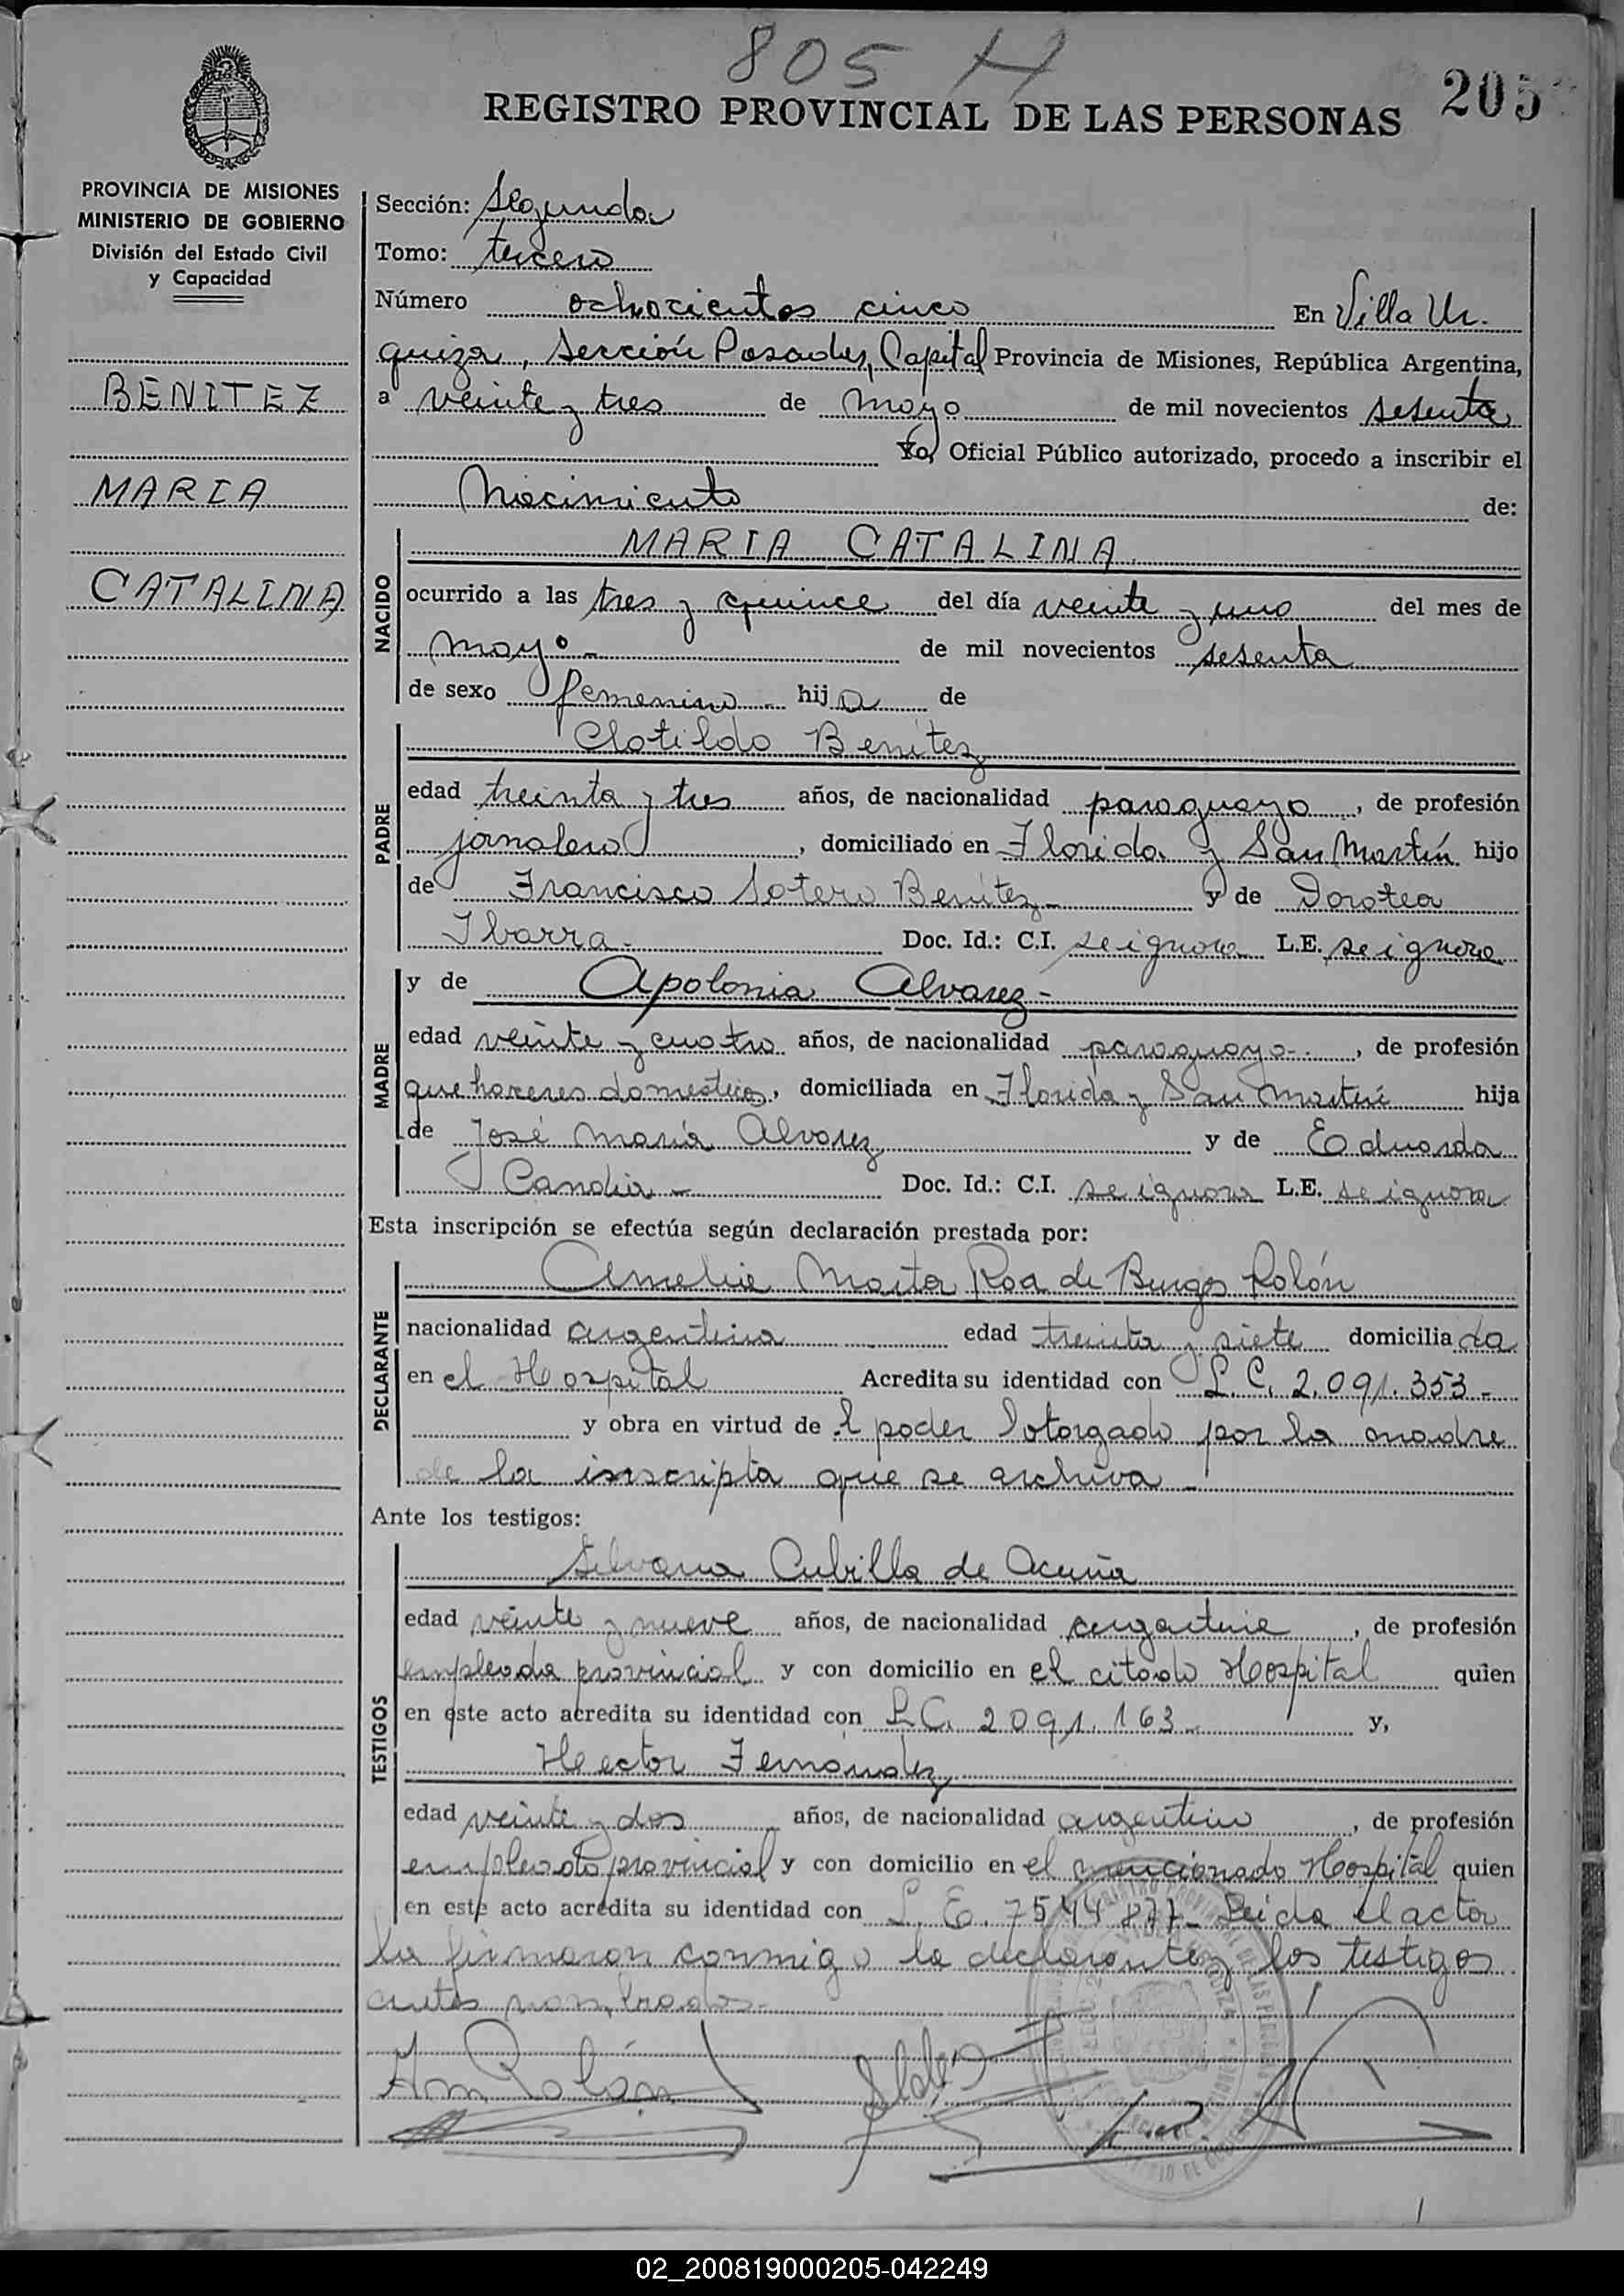 805 H
205
REGISTRO PROVINCIAL DE LAS PERSONAS
PROVINCIA DE MISIONES
MINISTERIO DE GOBIERNO
División del Estado Civil
y Capacidad
BENITEZ
MARIA
CATALINA
Sección: Segunda
Tomo: tercero
Número ochocientos cinco En Villa Ur.
quiza, Sección Posadas, Capital Provincia de Misiones, República Argentina,
a veinte y tres de mayo de mil novecientos sesenta
Yo, Oficial Público autorizado, procedo a inscribir el
Nacimiento de:
NACIDO
MARIA CATALINA
ocurrido a las tres y quince del día veinte y uno del mes de
mayo - de mil novecientos sesenta
de sexo femenino hija de
PADRE
Clotildo Benítez
edad treinta y tres años, de nacionalidad paraguayo, de profesión
jornalero, domiciliado en Florida y San Martín hijo
de Francisco Sotero Benítez - y de Dorotea
Ibarra - Doc. Id.: C.I. se ignora L.E. se ignora
MADRE
y de Apolonia Alvarez -
edad veinte y cuatro años, de nacionalidad paraguaya, de profesión
quehaceres domesticos, domiciliada en Florida y San Martín hija
de José María Alvarez y de Eduarda
Candia - Doc. Id.: C.I. se ignora L.E. se ignora
Esta inscripción se efectúa según declaración prestada por:
DECLARANTE
Amelia Marta Roa de Burgos Rolón
nacionalidad argentina edad treinta y siete domiciliada
en el Hospital Acredita su identidad con L.C. 2.091.353 -
y obra en virtud de l poder otorgado por la madre
de la inscripta que se archiva -
Ante los testigos:
TESTIGOS
Silvana Cubilla de Acuña
edad veinte y nueve años, de nacionalidad argentina, de profesión
empleada provincial y con domicilio en el citado Hospital quien
en este acto acredita su identidad con L.C. 2.091.163 - y,
Hector Fernández
edad veinte y dos años, de nacionalidad argentino, de profesión
empleado provincial y con domicilio en el mencionado Hospital quien
en este acto acredita su identidad con L.E. 7544877 - Leida el acta
la firmaron conmigo la declarante y los testigos
antes nombrados -
Am Rolón
02_200819000205-042249